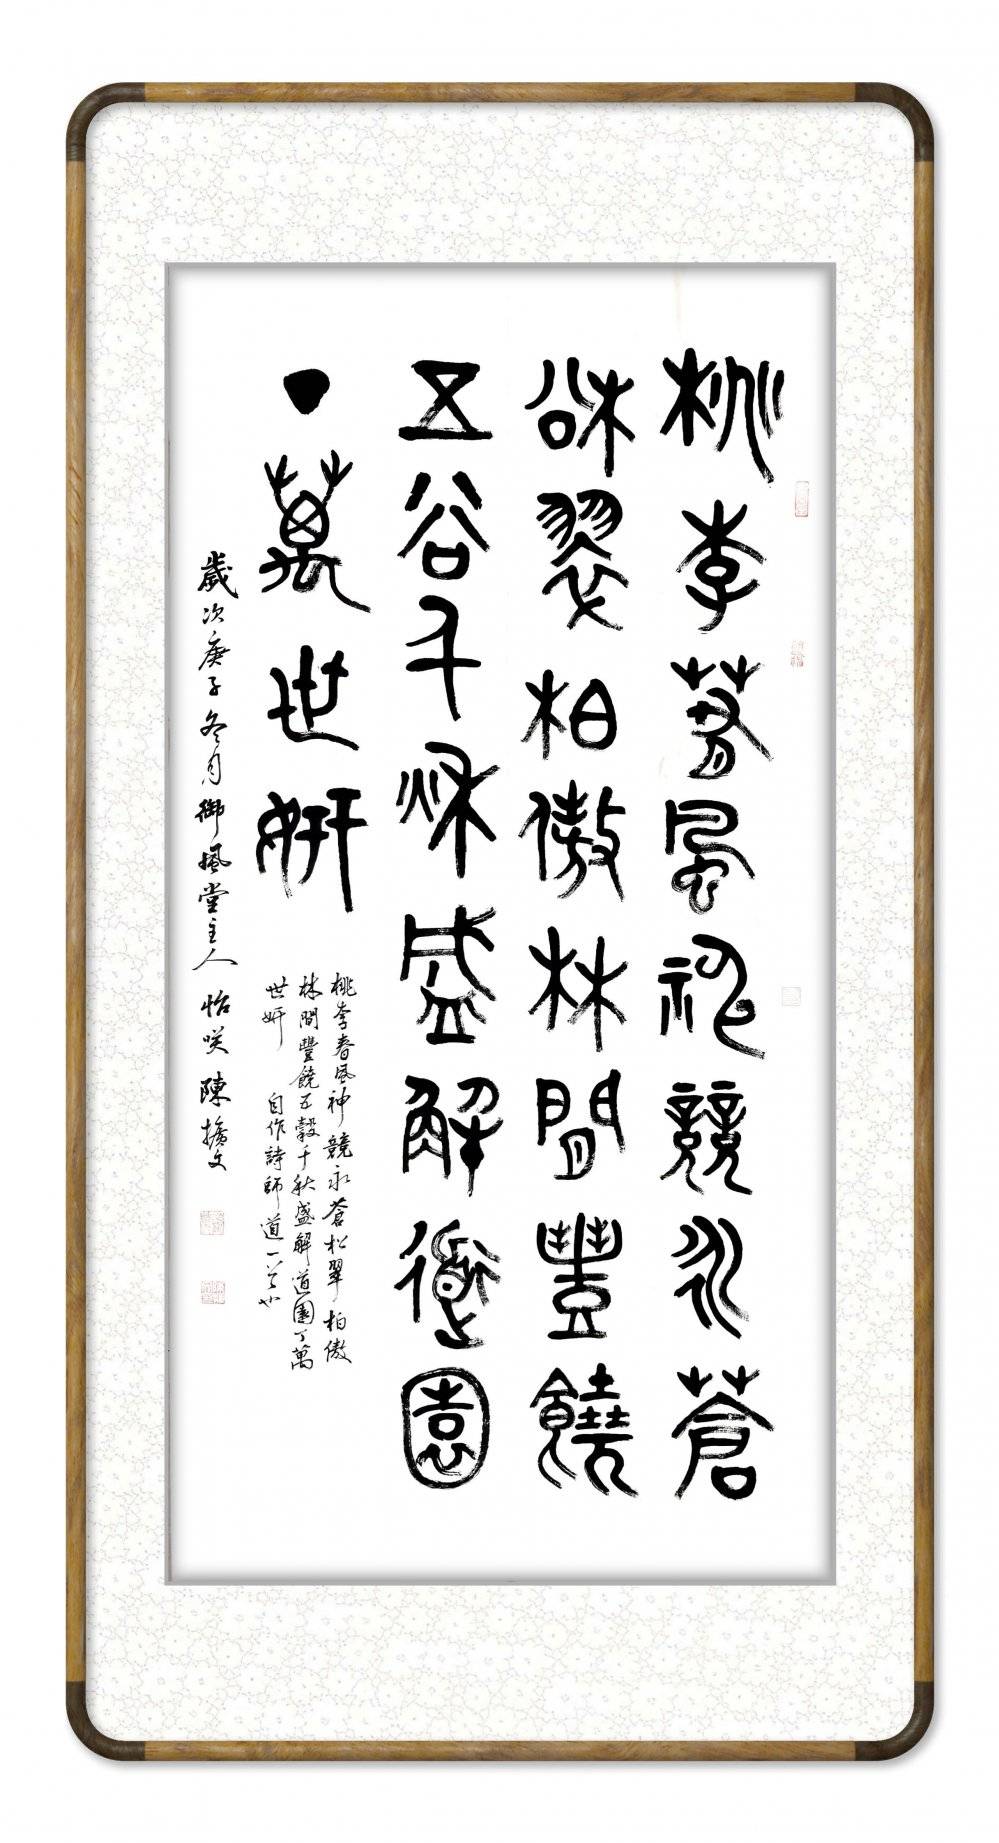 桃李春風神競永蒼
松翠柏傲林間豐饒
五谷千秋盛解道園
丁萬世妍
桃李春風神競永蒼松翠柏傲
林間豐饒五穀千秋盛解道園丁萬
世妍 自作詩師道一首也
歲次庚子冬月御風堂主人 怡咲 陳擴文